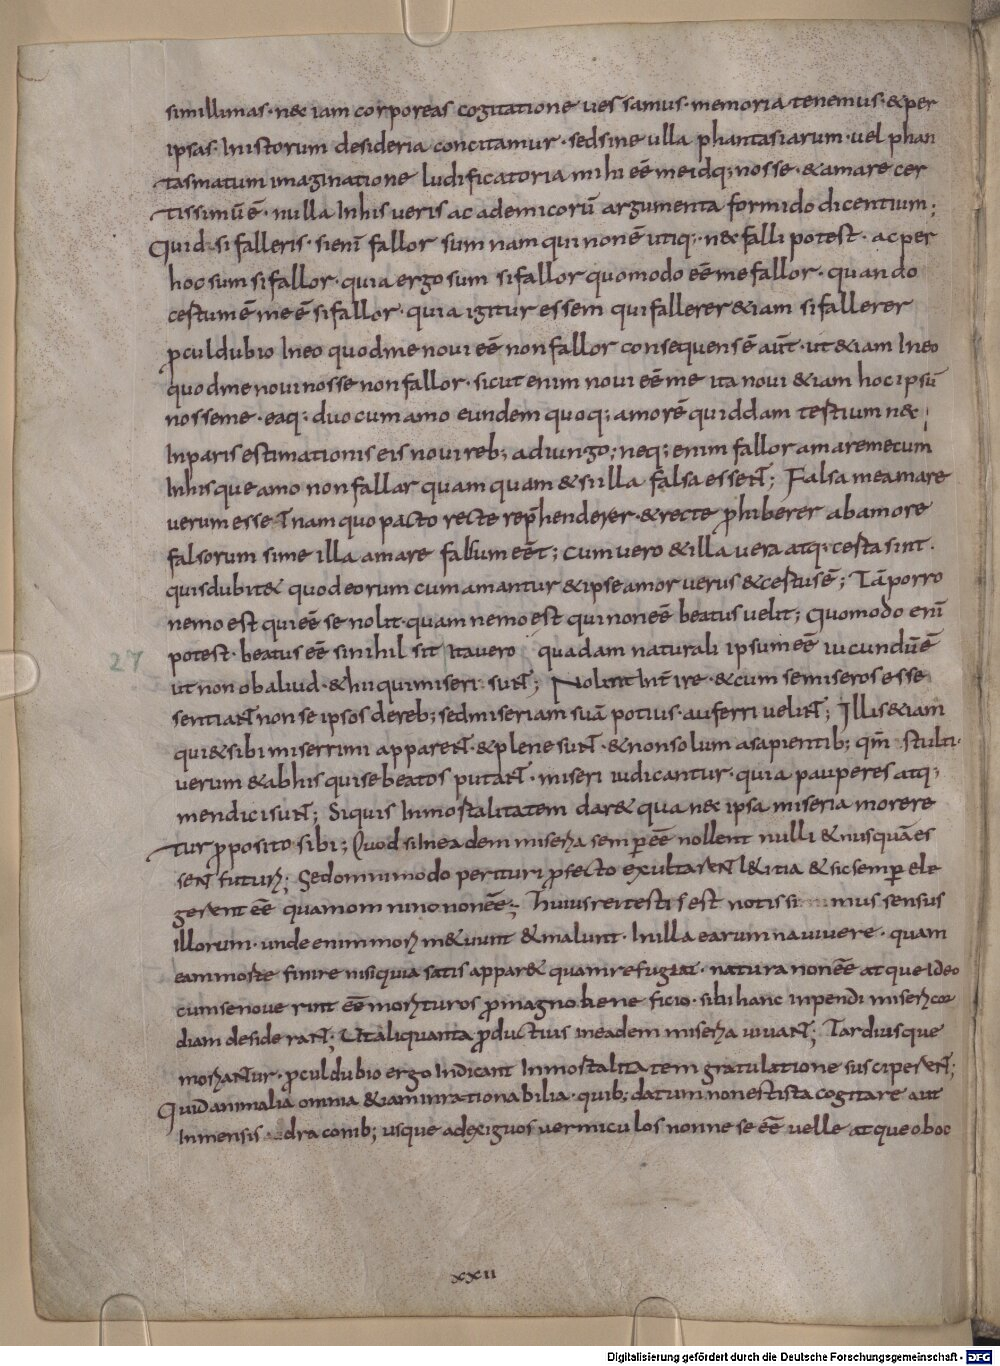 simillimas · nec iam corporeas cogitatione uersamus · memoria tenemus · & per
ipsas · In istorum desideria concitamur · sed sine ulla phantasiarum · uel phan
tasmatum imaginatione ludificatoria mihi eē me idq; nosse · & amare cer
tissimū ē · nulla In his ueris academicorū argumenta formido dicentium ;
Quid · si falleris · si enī fallor sum nam qui non ē utiq; · nec falli potest · ac per
hoc sum si fallor · quia ergo sum si fallor quomodo eē me fallor · quando
certum ē me eē si fallor · quia igitur essem qui fallerer &iam si fallerer
ꝓcul dubio In eo quod me noui eē non fallor consequens ē aūt · ut &iam In eo
quod me noui nosse non fallor · sicut enim noui eē me ita noui &iam hoc ipsū
nosse me · eaq; duo cum amo eundem quoq; amorē quiddam tertium nec
Inparis estimationis eis noui reb; adiungo ; neq; enim fallor amare me cum
In his que amo non fallar quamquam & si illa falsa essent ; Falsa me amare
uerum esse · nam quo pacto recte rep̄henderer · & recte ꝓhiberer ab amore
falsorum si me illa amare falsum eēt ; cum uero & illa uera atq; certa sint ·
quis dubit& quod eorum cum amantur & ipse amor uerus & certus ē ; Tā porro
nemo est qui eē se nolit · quam nemo est qui non eē beatus uelit ; Quomodo enī
potest · beatus eē si nihil sit Ita uero quadam naturali ipsum eē iucundū ē
27
ut non ob aliud · & hii qui miseri sunt ; Nolint Int̄ire · & cum se miseros esse
sentiant non se ipsos de reb; sed miseriam suā potius · auferri uelint ; Illis &iam
qui & sibi miserrimi apparent · & plene sunt · & non solum a sapientib; qm̄ stulti ·
uerum & ab his qui se beatos putant · miseri iudicantur · quia pauperes atq;
mendici sunt ; Si quis Inmortalitatem dar& qua nec ipsa miseria morere
tur ꝓposito sibi ; Quod si In eadem miseria semꝑ eē nollent nulli & nusquā es
sent futuri ; Sed omnimodo perituri ꝓfecto exultarent l&itia & sic semꝑ ele
gerent eē quam omnino non eē ; huius rei testis est notissimus sensus
Illorum · unde enim mori m&uunt & malunt · In illa earumna uiuere · quam
eam morte finire nisi quia satis appar& quam refugiat · natura non eē atque Ideo
cum se nouerint eē morituros ꝓ magno beneficio · sibi hanc inpendi misericor
diam desiderant ; Ut aliquanta ꝓductius in eadem miseria uiuant ; Tardiusque
moriantur · ꝓcul dubio ergo Indicant Inmortalitatem gratulatione susciperent ;
Quid animalia omnia &iam inrationabilia · quib; datum non est ista cogitare aut
Inmensis draconib; usque ad exiguos uermiculos nonne se eē uelle atque ob oc
xxii
Digitalisierung gefördert durch die Deutsche Forschungsgemeinschaft - DFG